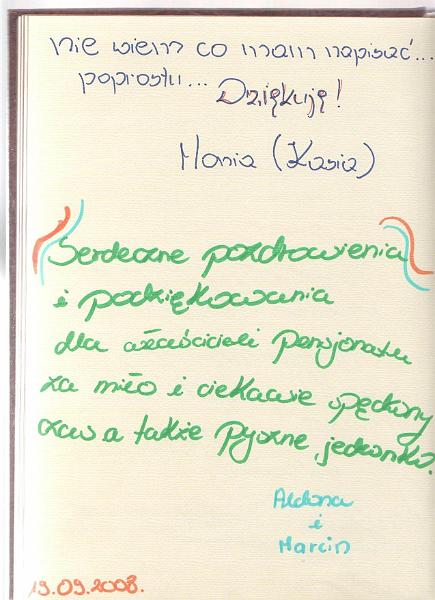 nie wiem co mam napisać...
poprostu... Dziękuję!
Mania (Kasia)
Serdeczne pozdrowienia
i podziękowania
dla właścicieli Pensjonatu
za miło i ciekawie spędzony
czas a także pyszne jedzonko.
Aldona
i
Marcin
19.09.2008.